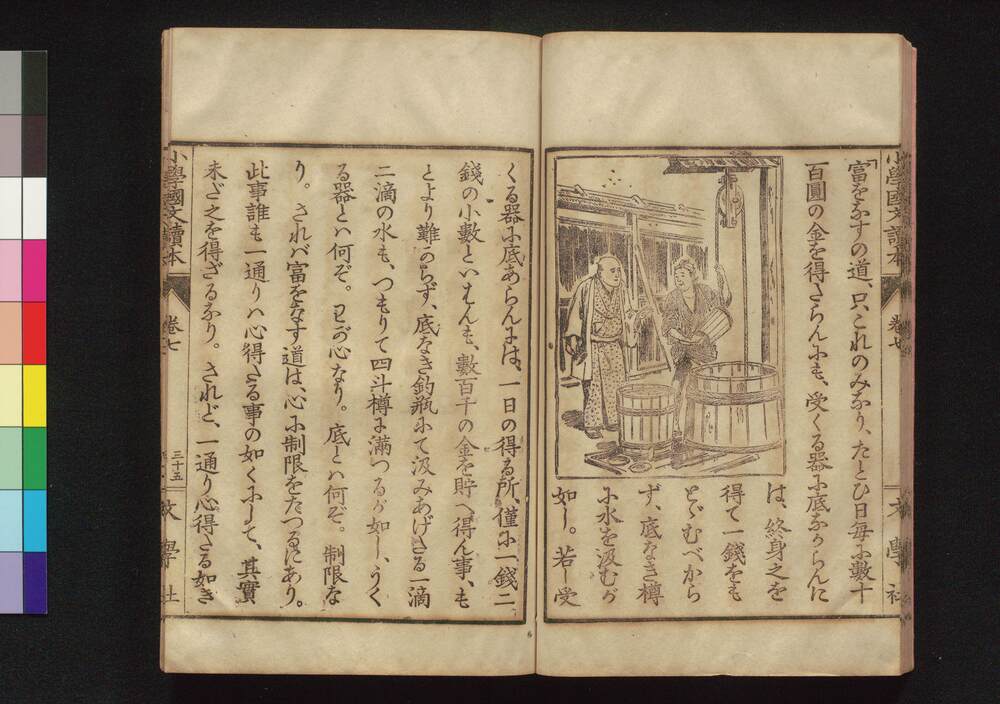 小學國文讀本
卷七
文學社
「富をなすの道、只これのみなり、たとひ日毎に數十
百圓の金を得たらんにも、受くる器に底なからんに
は、終身之を
得て一錢をも
とゞむべから
ず、底なき樽
に水を汲むが
如し。若し受
くる器に底あらんには、一日の得る所、僅に一錢二
錢の小數といはんも、數百千の金を貯へ得ん事、も
とより難からず、底なき釣瓶にて汲みあげたる一滴
二滴の水も、つもりて四斗樽に滿つるが如し、うく
る器とハ何ぞ。己が心なり。底とハ何ぞ。制限な
り。されバ富をなす道は、心に制限をたつるにあり。
此事誰も一通りハ心得たる事の如くにして、其實
未だ之を得ざるなり。されど、一通り心得たる如き
小學國文讀本
卷七
三十五
文學社